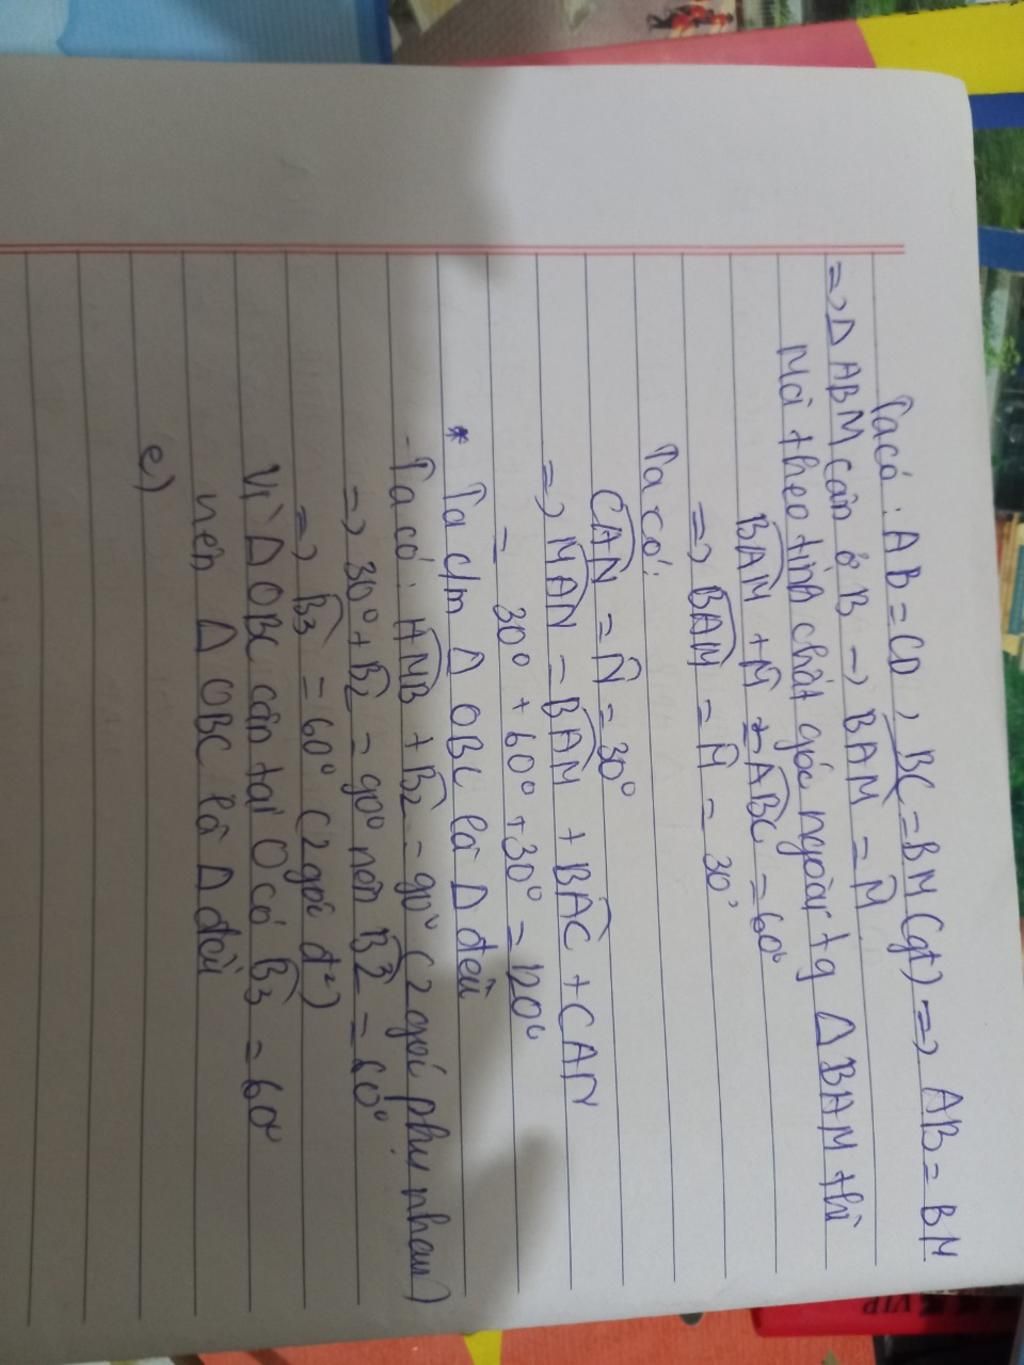 Ta có: AB = CD, BC = BM (gt) => AB = BM
=> Δ ABM cân ở B -> BAM = M
Mà theo tính chất góc ngoài tg Δ BAM thì
BAM + M = ABC = 60°
=> BAM = M = 30°
Ta có:
CAN = N = 30°
=> MAN = BAM + BAC + CAN
= 30° + 60° + 30° = 120°
* Ta c/m Δ OBC là Δ đều
- Ta có: HMB + B2 = 90° (2 góc phụ nhau)
=> 30° + B2 = 90° nên B2 = 60°
=> B3 = 60° (2 góc đ²)
Vì Δ OBC cân tại O có B3 = 60°
nên Δ OBC là Δ đều
e)
VIP